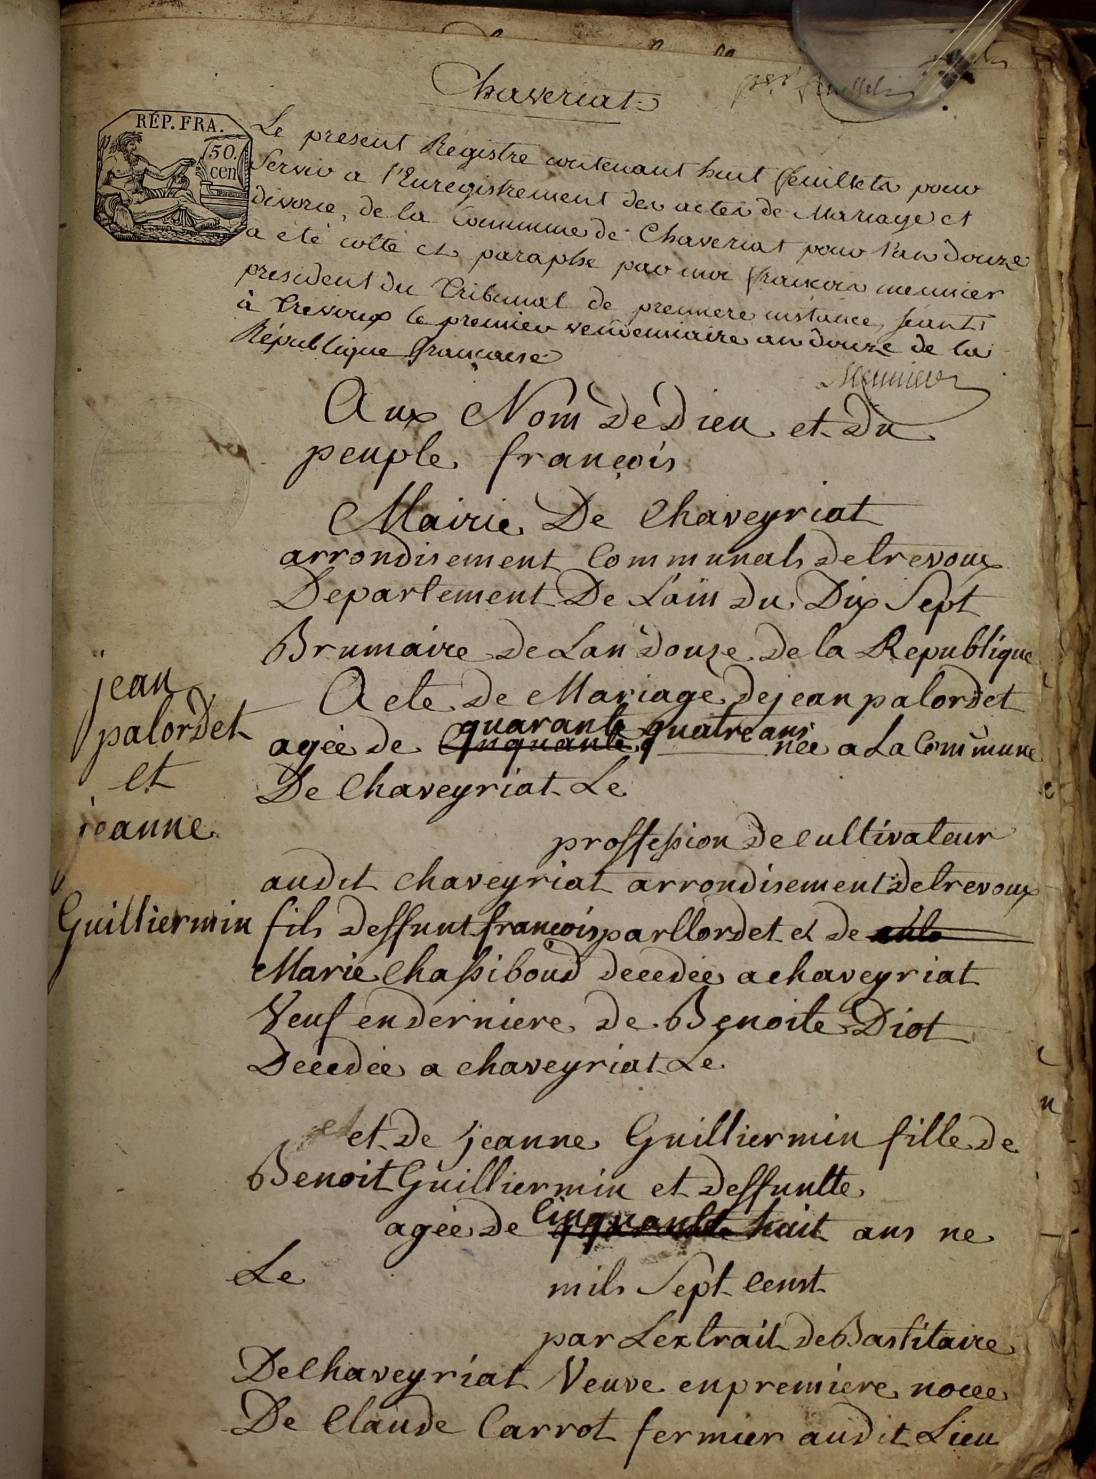 Chaveriat
RÉP. FRA.
50.
cen
Le present Registre contenant huit feuillets pour
Servir a l'Enregistrement des actes de Mariage et
divorce, de la Commune de Chaveriat pour l'an douze
a eté cotté et paraphé par moi françois meunier
president du Tribunal de premiere instance, seant
à Trevoux le premier vendemiaire an douze de la
République française
Meunier
Aux Nom de Dieu et du
peuple françois
Mairie De Chaveyriat
arrondisement Communals de trevoux
Departement De Lain du Dix Sept
Brumaire de Lan douze de la Republique
jean
palordet
et
jeanne
Guilliermin
Acte de Mariage de jean palordet
quarante quatre ans
agée de Cinquante née a La Commune
De Chaveyriat Le
proffession de cultivateur
audit chaveyriat arrondisement de trevoux
fils deffunt françois parllordet et de
Marie Chassiboud decedée a chaveyriat
Veuf en derniere de Benoite Diot
Decedée a chaveyriat Le
et de jeanne Guilliermin fille de
Benoit Guilliermin et deffuntte
agée de Cinquante huit ans ne
Le mils Sept Cent
par Lextrait de Bastitaire
De Chaveyriat Veuve en premiere nocce
De Claude Carrot fermier audit Lieu